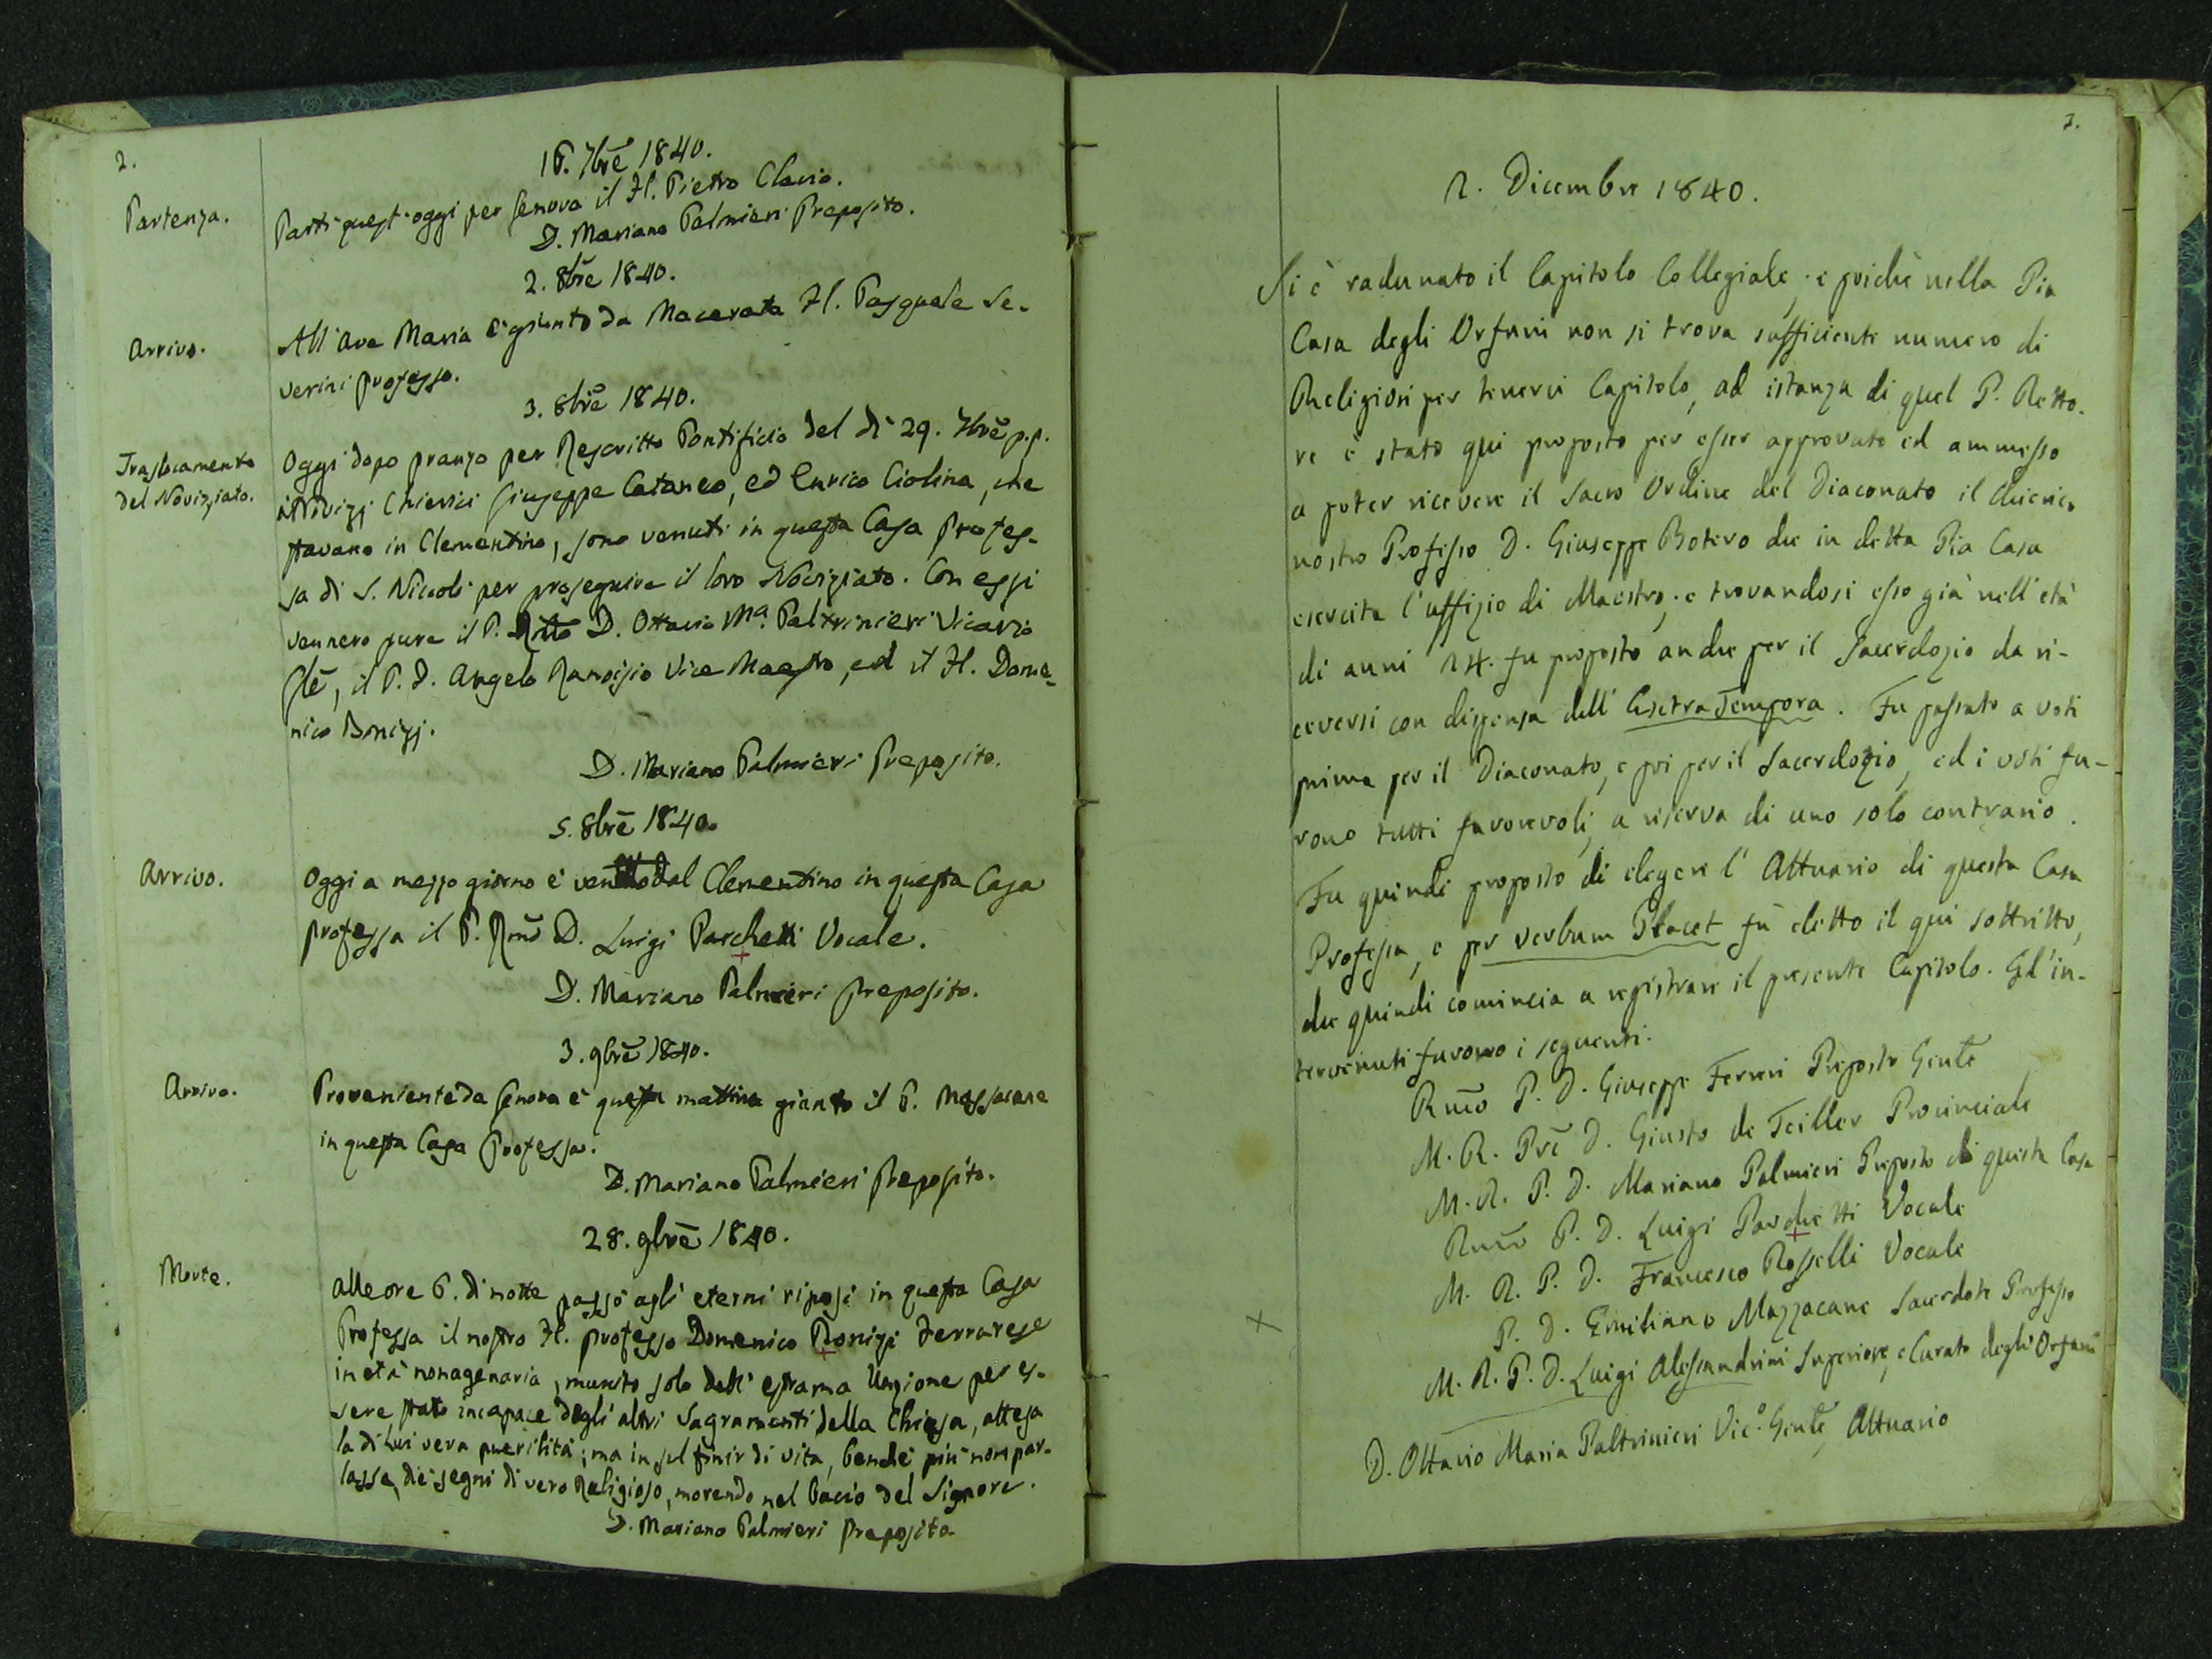 2.
16. 7brē 1840.
Partenza. Partì quest'oggi per Genova il Fl. Pietro Clavio.
D. Mariano Palmieri Preposito.
2. 8brē 1840.
Arrivo. All'Ave Maria è giunto da Macerata Fl. Pasquale Se-
verini professo.
3. 8brē 1840.
Traslocamento Oggi dopo pranzo per Rescritto Pontificio del dì 29. 7brē p.p.
del Noviziato. i Novizj Chierici Giuseppe Cataneo, ed Enrico Ciolina, che
stavano in Clementino, sono venuti in questa Casa Profes-
sa di S. Niccolò per proseguire il loro Noviziato. Con essi
vennero pure il P. D. Ottavio Mª. Paltrinieri Vicario
Glē, il P. D. Angelo Vice Maestro, ed il Fl. Dome-
nico Bonizj.
D. Mariano Palmieri Preposito.
5. 8brē 1840.
Arrivo. Oggi a mezzo giorno è venuto dal Clementino in questa Casa
professa il P. Rmō D. Luigi Parchetti Vocale.
D. Mariano Palmieri Preposito.
3. 9brē 1840.
Arrivo. Proveniente da Genova è questa mattina giunto il P. Massacane
in questa Casa Professa.
D. Mariano Palmieri Preposito.
28. 9brē 1840.
Morte. Alle ore 6. di notte passò agli eterni riposi in questa Casa
Professa il nostro Fl. professo Domenico Bonizj Ferrarese
in età nonagenaria, munito solo dell'estrama Unzione per es-
sere stato incapace degli altri Sagramenti della Chiesa, attesa
la di Lui vera puerilità; ma in sul finir di vita, benchè più non par-
lasse, diè segni di vero Religioso, morendo nel bacio del Signore.
D. Mariano Palmieri Preposito
3.
2. Dicembre 1840.
Si è radunato il Capitolo Collegiale; e poichè nella Pia
Casa degli Orfani non si trova sufficiente numero di
Religiosi per tenervi Capitolo, ad istanza di quel P. Retto-
re è stato qui proposto per esser approvato ed ammesso
a poter ricevere il Sacro Ordine del Diaconato il Chierico
nostro Professo D. Giuseppe Botero che in detta Pia Casa
esercita l'uffizio di Maestro; e trovandosi esso già nell'età
di anni 24. fu proposto anche per il Sacerdozio da ri-
ceversi con dispensa dell'Extra Tempora. Fu passato a voti
prima per il Diaconato, e poi per il Sacerdozio, ed i voti fu-
rono tutti favorevoli, a riserva di uno solo contrario.
Fu quindi proposto di elegere l'Attuario di questa Casa
Professa, e per verbum Placet fù eletto il qui sottritto,
che quindi comincia a registrare il presente Capitolo. Gl'in-
tervenuti furono i seguenti.
Rmō P. D. Giuseppe Ferreri Preposto Genlē
M. R. Prē D. Giusto de Teiller Provinciale
M. R. P. D. Mariano Palmieri Preposto di questa Casa
Rmō P. D. Luigi Parchetti Vocale
M. R. P. D. Francesco Rosselli Vocale
P. D. Emiliano Mazzacane Sacerdote Professo
M. R. P. D. Luigi Alessandrini Superiore, e Curato degli Orfani
D. Ottavio Maria Paltrinieri Vic.º Genlē, Attuario